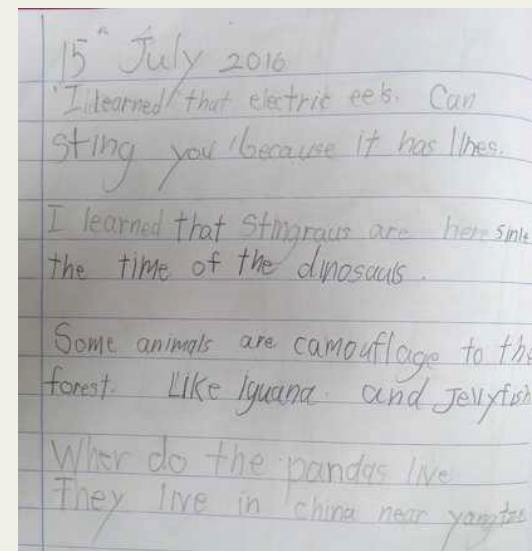 15th July 2016
"I learned" that electric eels. Can
sting you "because it has lines.
I learned that Stingraus are here sinle
the time of the dinosauls.
Some animals are camouflage to the
forest. Like iguana. and Jellyfish
Wher do the pandas live
They live in china near yangtze